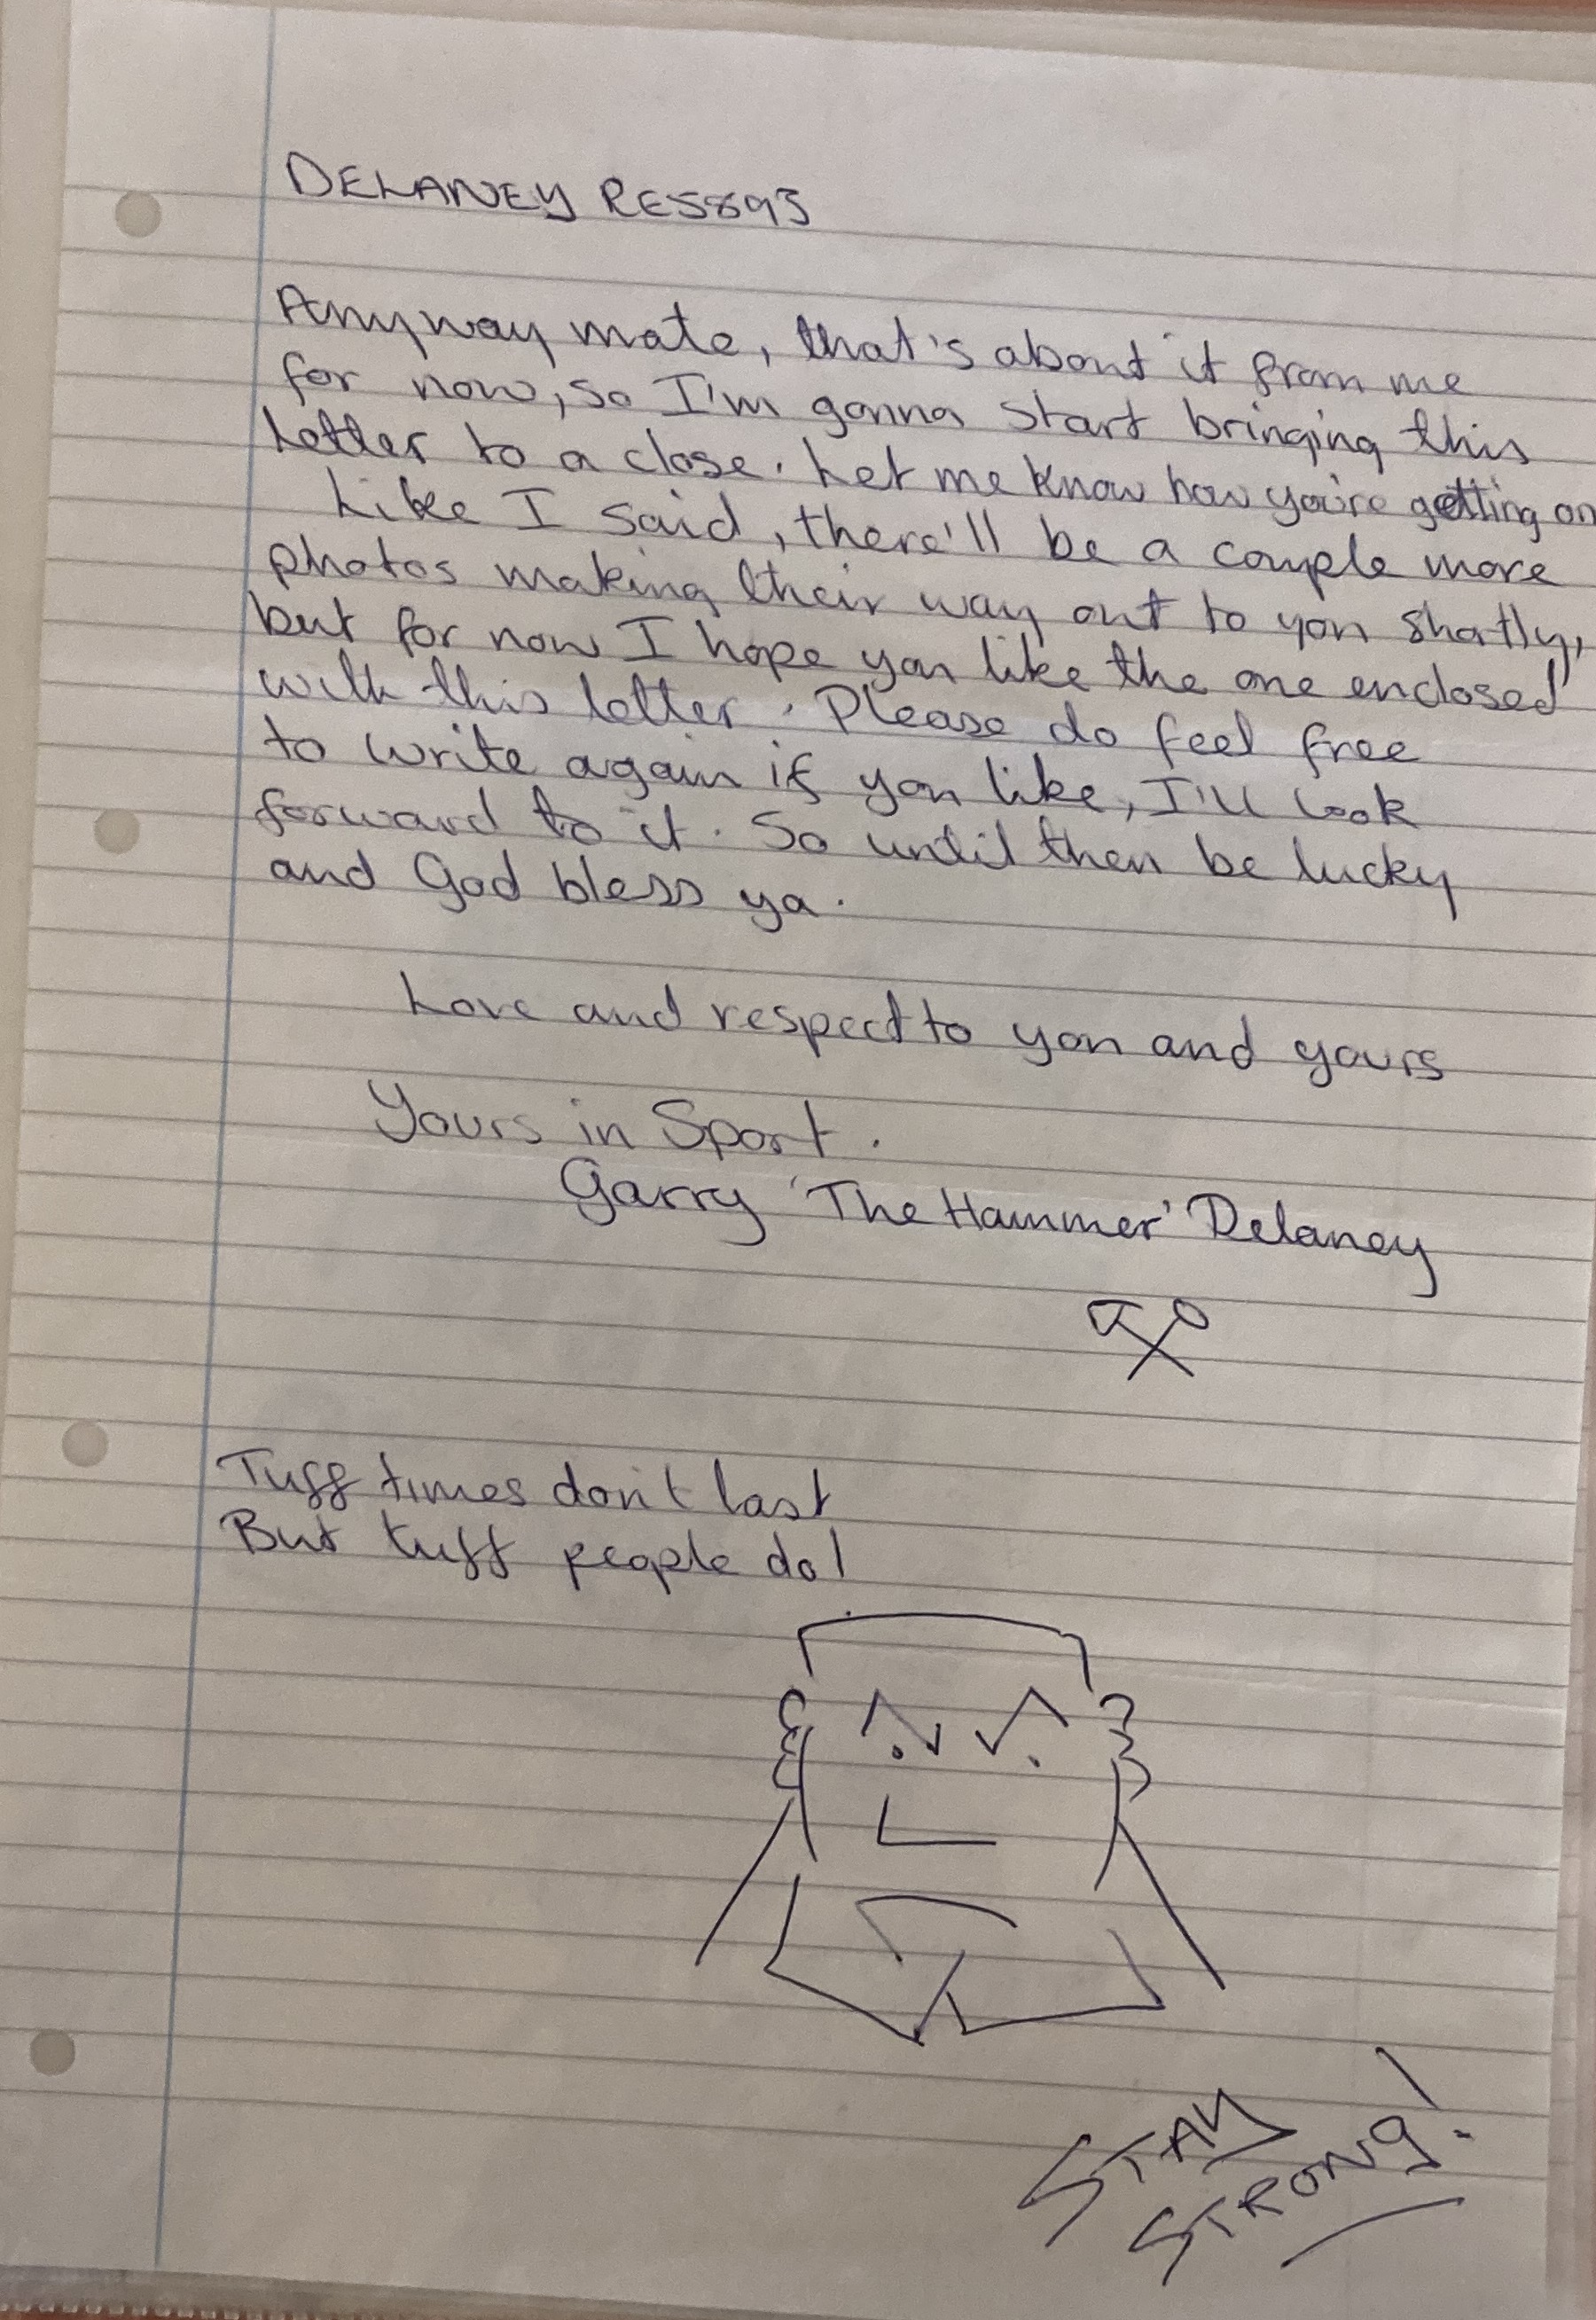 DELANEY RE5893
Anyway mate, that's about it from me
for now, so I'm gonna start bringing this
letter to a close. Let me know how you're getting on
Like I said, there'll be a couple more
photos making their way out to you shortly,
but for now I hope you like the one enclosed
with this letter. Please do feel free
to write again if you like, I'll look
forward to it. So until then be lucky
and God bless ya.
Love and respect to you and yours
Yours in Sport.
Garry 'The Hammer' Delaney
Tuff times don't last
But tuff people do!
STAY
STRONG!